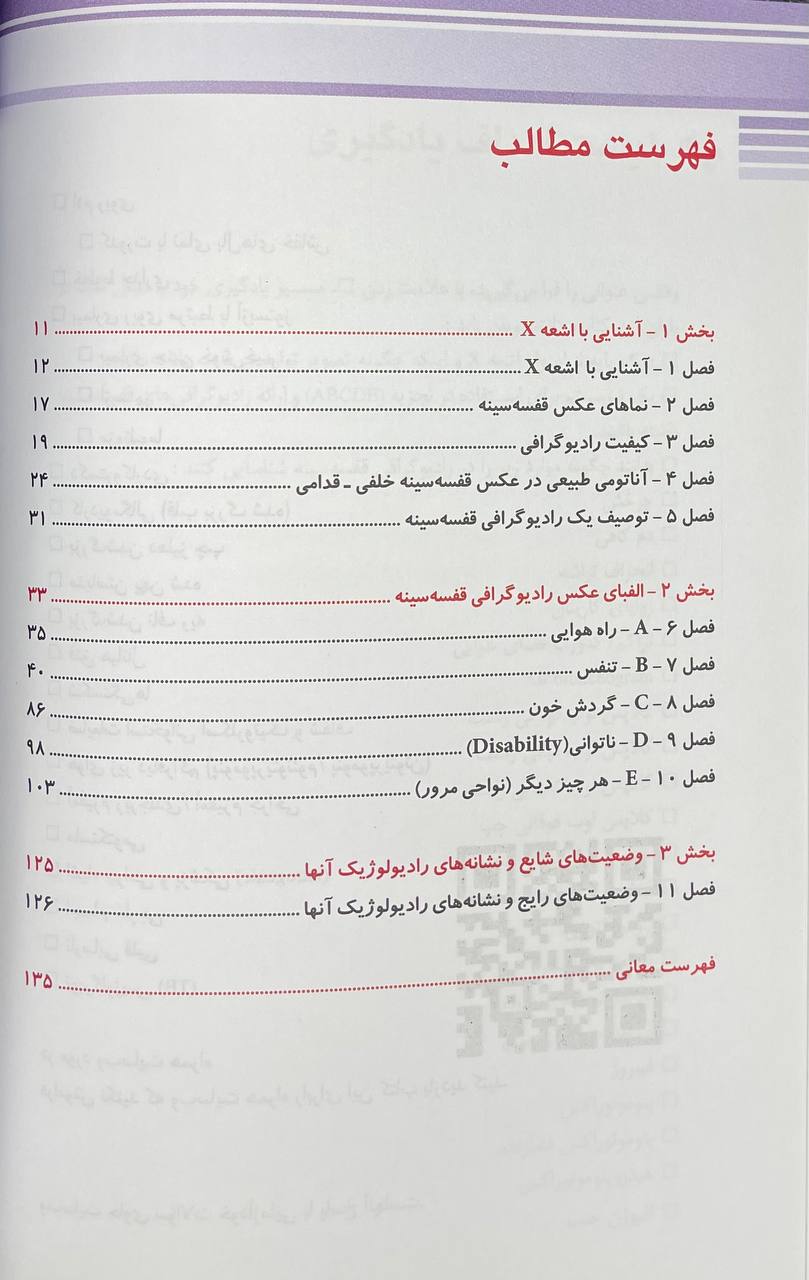 فهرست مطالب
بخش ۱ – آشنایی با اشعه X ........ ۱۱
فصل ۱ – آشنایی با اشعه X ........ ۱۲
فصل ۲ – نماهای عکس قفسه‌سینه ........ ۱۷
فصل ۳ – کیفیت رادیوگرافی ........ ۱۹
فصل ۴ – آناتومی طبیعی در عکس قفسه‌سینه خلفی ـ قدامی ........ ۲۴
فصل ۵ – توصیف یک رادیوگرافی قفسه‌سینه ........ ۳۱
بخش ۲ – الفبای عکس رادیوگرافی قفسه‌سینه ........ ۳۳
فصل ۶ – A – راه هوایی ........ ۳۵
فصل ۷ – B – تنفس ........ ۴۰
فصل ۸ – C – گردش خون ........ ۸۶
فصل ۹ – D – ناتوانی(Disability) ........ ۹۸
فصل ۱۰ – E – هر چیز دیگر (نواحی مرور) ........ ۱۰۳
بخش ۳ – وضعیت‌های شایع و نشانه‌های رادیولوژیک آنها ........ ۱۲۵
فصل ۱۱ – وضعیت‌های رایج و نشانه‌های رادیولوژیک آنها ........ ۱۲۶
فهرست معانی ........ ۱۳۵